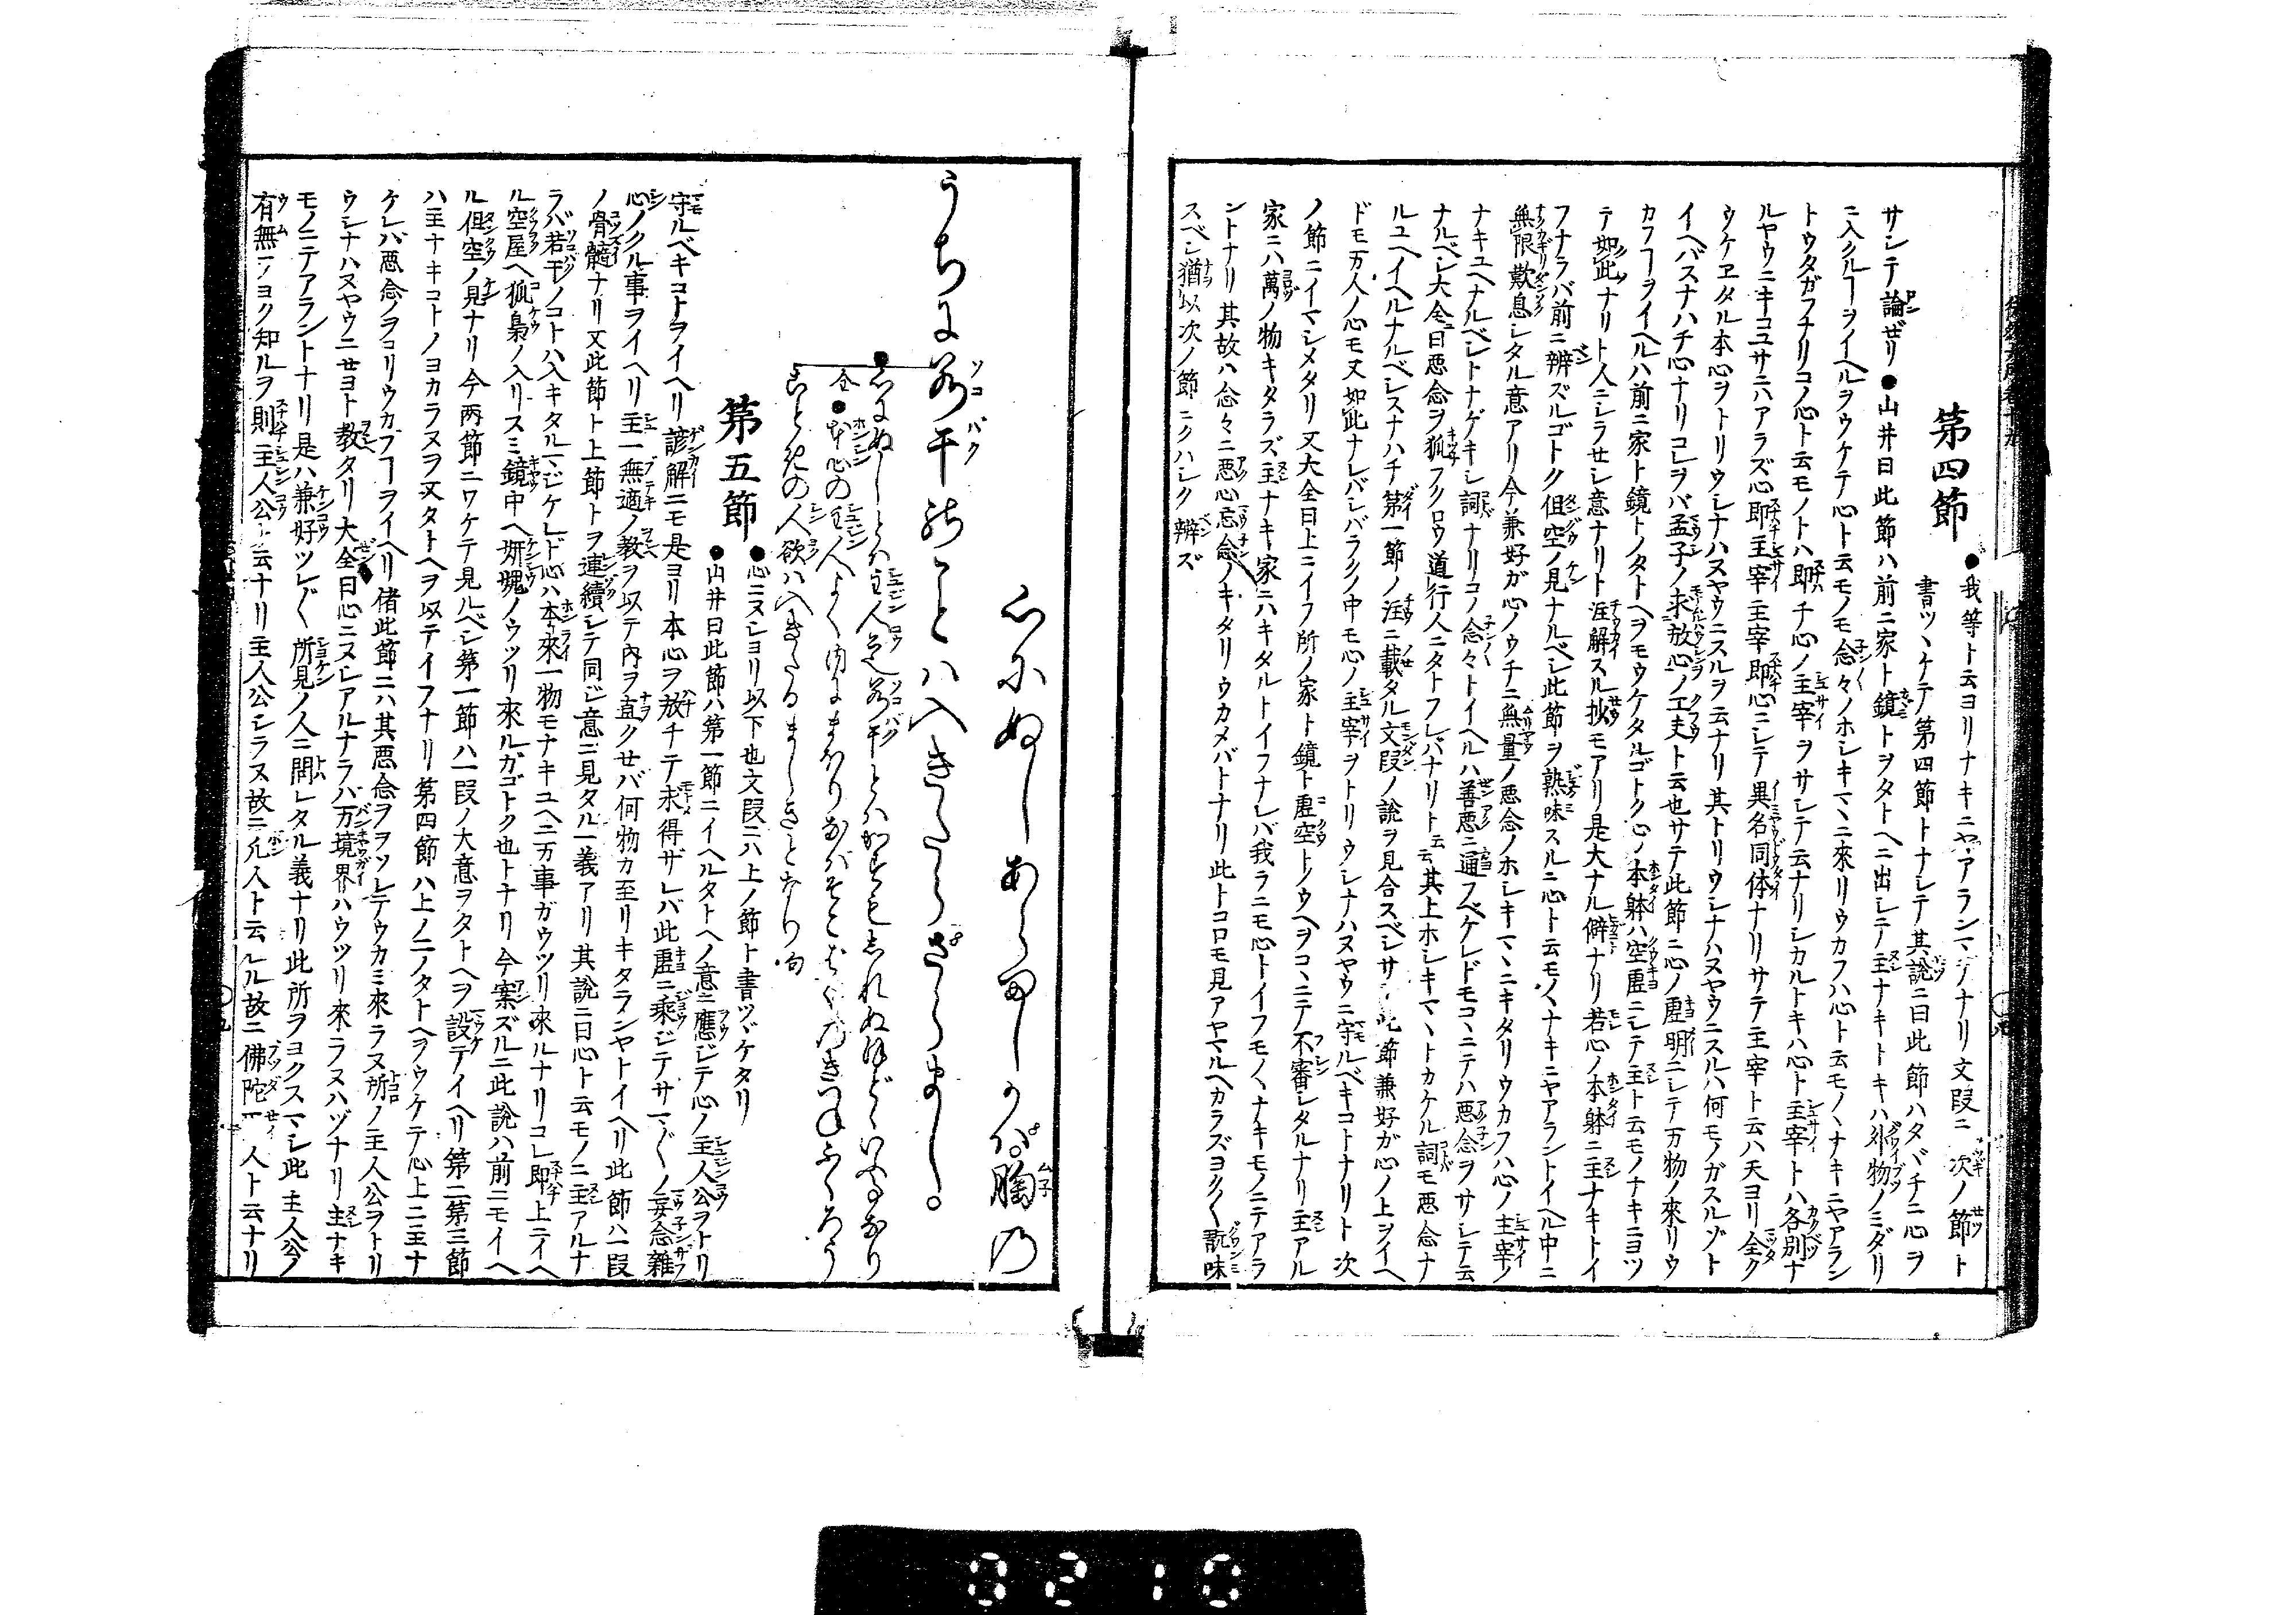 第四節
●我等ト云ヨリナキニヤアランマデナリ文段ニ次ノ節ト
書ツヾケテ第四節トナシテ其說ニ曰此節ハタヾチニ心ヲ
サシテ論ゼリ●山井曰此節ハ前ニ家ト鏡トヲタトヘニ出シテ主ナキトキハ外物ノミダリ
ニ入クルヿヲイヘルヲウケテ心ト云モノモ念々ノホシキマヽニ來リウカフハ心ト云モノヽナキニヤアラン
トウタガフナリコノ心ト云モノトハ即チ心ノ主宰ヲサシテ云ナリシカルトキハ心ト主宰トハ各別ナ
ルヤウニキコユサニハアラズ心即主宰主宰即心ニシテ異名同体ナリサテ主宰ト云ハ天ヨリ全ク
ウケヱタル本心ヲトリウシナハヌヤウニスルヲ云ナリ其トリウシナハヌヤウニスルハ何モノガスルゾト
イヘバスナハチ心ナリコレヲバ孟子ノ求放心ノ工夫ト云也サテ此節ニ心ノ虛明ニシテ万物ノ來リウ
カフヿヲイヘルハ前ニ家ト鏡トノタトヘヲモウケタルゴトク心ノ本躰ハ空虛ニシテ主ト云モノナキニヨツ
テ如此ナリト人ニシラセシ意ナリト注解スル抄モアリ是大ナル僻ナリ若心ノ本躰ニ主ナキトイ
フナラバ前ニ辨ズルゴトク但空ノ見ナルベシ此節ヲ熟味スルニ心ト云モノヽナキニヤアラントイヘル中ニ
無限歎息シタル意アリ今兼好ガ心ノウチニ無量ノ悪念ノホシキマヽニキタリウカフハ心ノ主宰ノ
ナキユヘナルベシトナゲキシ詞ナリコノ念々トイヘルハ善悪ニ通フベケレドモコヽニテハ悪念ヲサシテ云
ナルベシ大全ニ曰悪念ヲ狐フクロウ道行人ニタトフレバナリト云云其上ホシキマヽトカケル詞モ悪念ナ
ルユヘイヘルナルベシスナハチ第一節ノ注ニ載タル文段ノ說ヲ見合スベシサ 此節兼好ガ心ノ上ヲイヘ
ドモ万人ノ心モ又如此ナレバシバラクノ中モ心ノ主宰ヲトリウシナハヌヤウニ守ルベキコトナリト次
ノ節ニイマシメタリ又大全曰上ニイフ所ノ家ト鏡ト虛空トノウヘヲコヽニテ不審シタルナリ主アル
家ニハ萬ノ物キタラズ主ナキ家ニハキタルトイフナレバ我ラニモ心トイフモノヽナキモノニテアラ
ントナリ其故ハ念々ニ悪心忘念ノキタリウカメバトナリ此トコロモ見アヤマルヘカラズヨク〱翫味
スベシ猶以次ノ節ニクハシク辨ズ
心にぬしあらましかば胸の
うちに若干のことハ入きたらざらまし。
●心にぬしとハ主人公也若干とハかずもしれぬほどゝいふ事なり
全●本心の主人よく内にまもりあればそこばくのきつねふくろう
ごときの人欲ハ入きたるましきとなり句
第五節
●心ニヌシヨリ以下也文段ニハ上ノ節ト書ツヾケタリ
●山井曰此節ハ第一節ニイヘルタトヘノ意ニ應ジテ心ノ主人公ヲトリ
守ルベキコトヲイヘリ諺解ニモ是ヨリ本心ヲ放チテ未得ザレバ此虛ニ乘ジテサマ〲ノ妄念雜
心ノクル事ヲイヘリ主一無適ノ教ヲ以テ內ヲ直クセバ何物カ至リキタランヤトイヘリ此節ハ一段
ノ骨髓ナリ又此節ト上節トヲ連續シテ同ジ意ニ見タル一義アリ其說ニ曰心ト云モノニ主アルナ
ラバ若干ノコトハ入キタルマジケレド心ハ本來一物モナキユヘニ万事ガウツリ來ルナリコレ即上ニイヘ
ル空屋ヘ狐梟ノ入リスミ鏡中ヘ妍媸ノウツリ來ルガゴトク也トナリ今案ズルニ此說ハ前ニモイヘ
ル但空ノ見ナリ今両節ニワケテ見ルベシ第一節ハ一段ノ大意ヲタトヘヲ設テイヘリ第二第三節
ハ主ナキコトノヨカラヌヲ又タトヘヲ以テイフナリ第四節ハ上ノ二ノタトヘヲウケテ心上ニ主ナ
ケレバ悪念ノヲコリウカフヿヲイヘリ偖此節ニハ其悪念ヲヲソレテウカミ來ラヌ所ノ主人公ヲトリ
ウシナハヌヤウニセヨト教タリ大全曰心ニヌシアルナラバ万境界ハウツリ來ラヌハヅナリ主ナキ
モノニテアラントナリ是ハ兼好ツレ〲所見ノ人ニ問レタル義ナリ此所ヲヨクスマシ此主人公ノ
有無ヿヲヨク知ルヲ則主人公ト云ナリ主人公シラヌ故ニ凡人ト云シル故ニ佛陀 人ト云ナリ